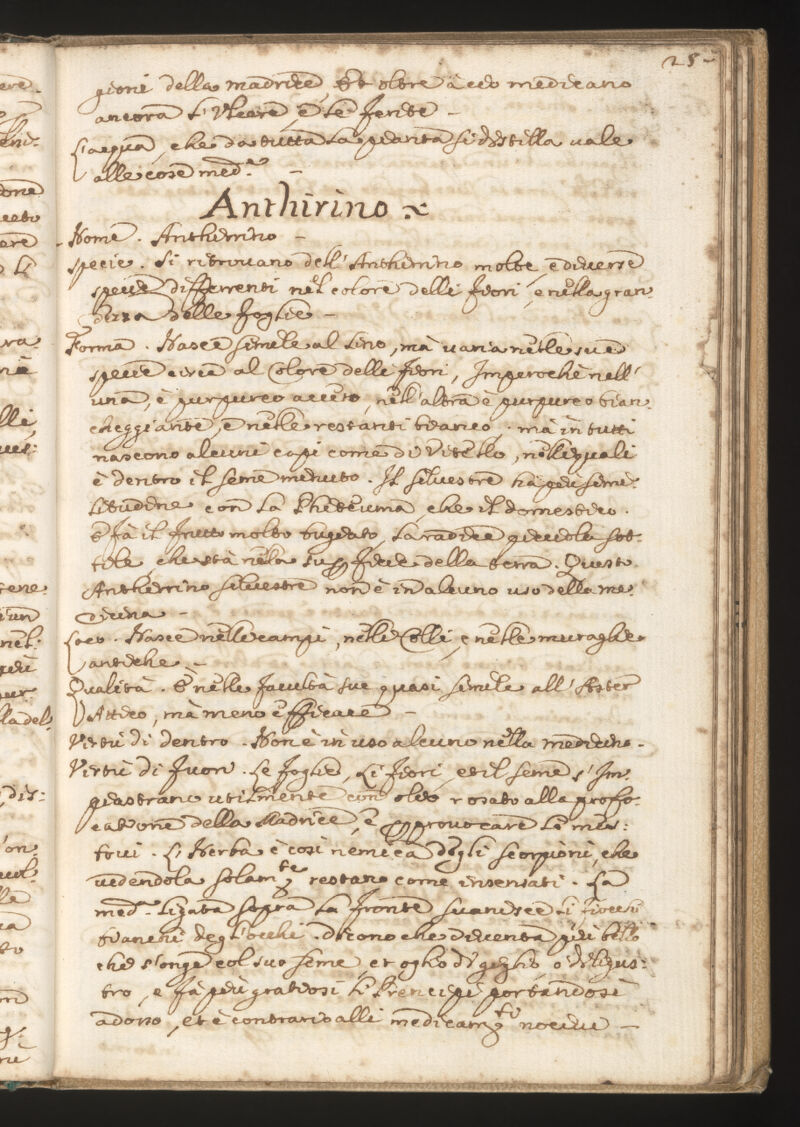 25
gioni della madrice, et oltre à ciò medicano
ancora l'Vlcere, e le ferite –
L'acqua, che da tutta la pianta si distilla uale
alle cose med.e –
Anthirino
Nome. Anthirrino –
specie. Si ritrouano dell'Anthirrino molte, e diuerse
specie differenti nel colore delli fiori, e nella gran
dezza delle foglie –
Forma. Nasce simile al lino, mà uaria nelle sue
specie circa al colore delli fiori, Imperochè nell'
una, è purpureo acceso, nell'altra è purpureo bian
cheggiante, e nelle restanti bianco. mà in tutti
nascono alcuni capi come di Vitello, nelli quali
è dentro il seme minuto. Il siluestre hà più simi
litudine con la Phiteuma, che il domestico.
E fà il frutto molto bugiato, la radice picciola sot
tile che stà nella superficie della terra. Questo
Anthirrino siluestre non è in alcuno uso della me
dicina –
Loco. Nasce nelli campi, nelli Colli, e nelle muraglie
antiche –
Qualità. È nelle facultà sue quasi simile all'Aster
Attico, mà meno efficace –
Virtù di dentro. Non è in uso alcuno nella medicina.
Virtù di fuori. Le foglie, li fiori, et il seme s'Im
piastrano utilmente con oleo rosato alla prefo
catione della Madrice, e per prouocare li mes:
trui. L'Herba è così nemica degli scorpioni, che
uedendola solam.te restano come insensati. La
med.a ligata sopra la fronte suanisce li fiocchi
bianchi degl'occhi. dicono che diuenta più bello
chi s'onge col suo seme, et oglio di giglio, o di ligus:
tro, e fà più gratiosi li Prencipi portandosi
adosso, et è contrario alli medicam.ti nociui –